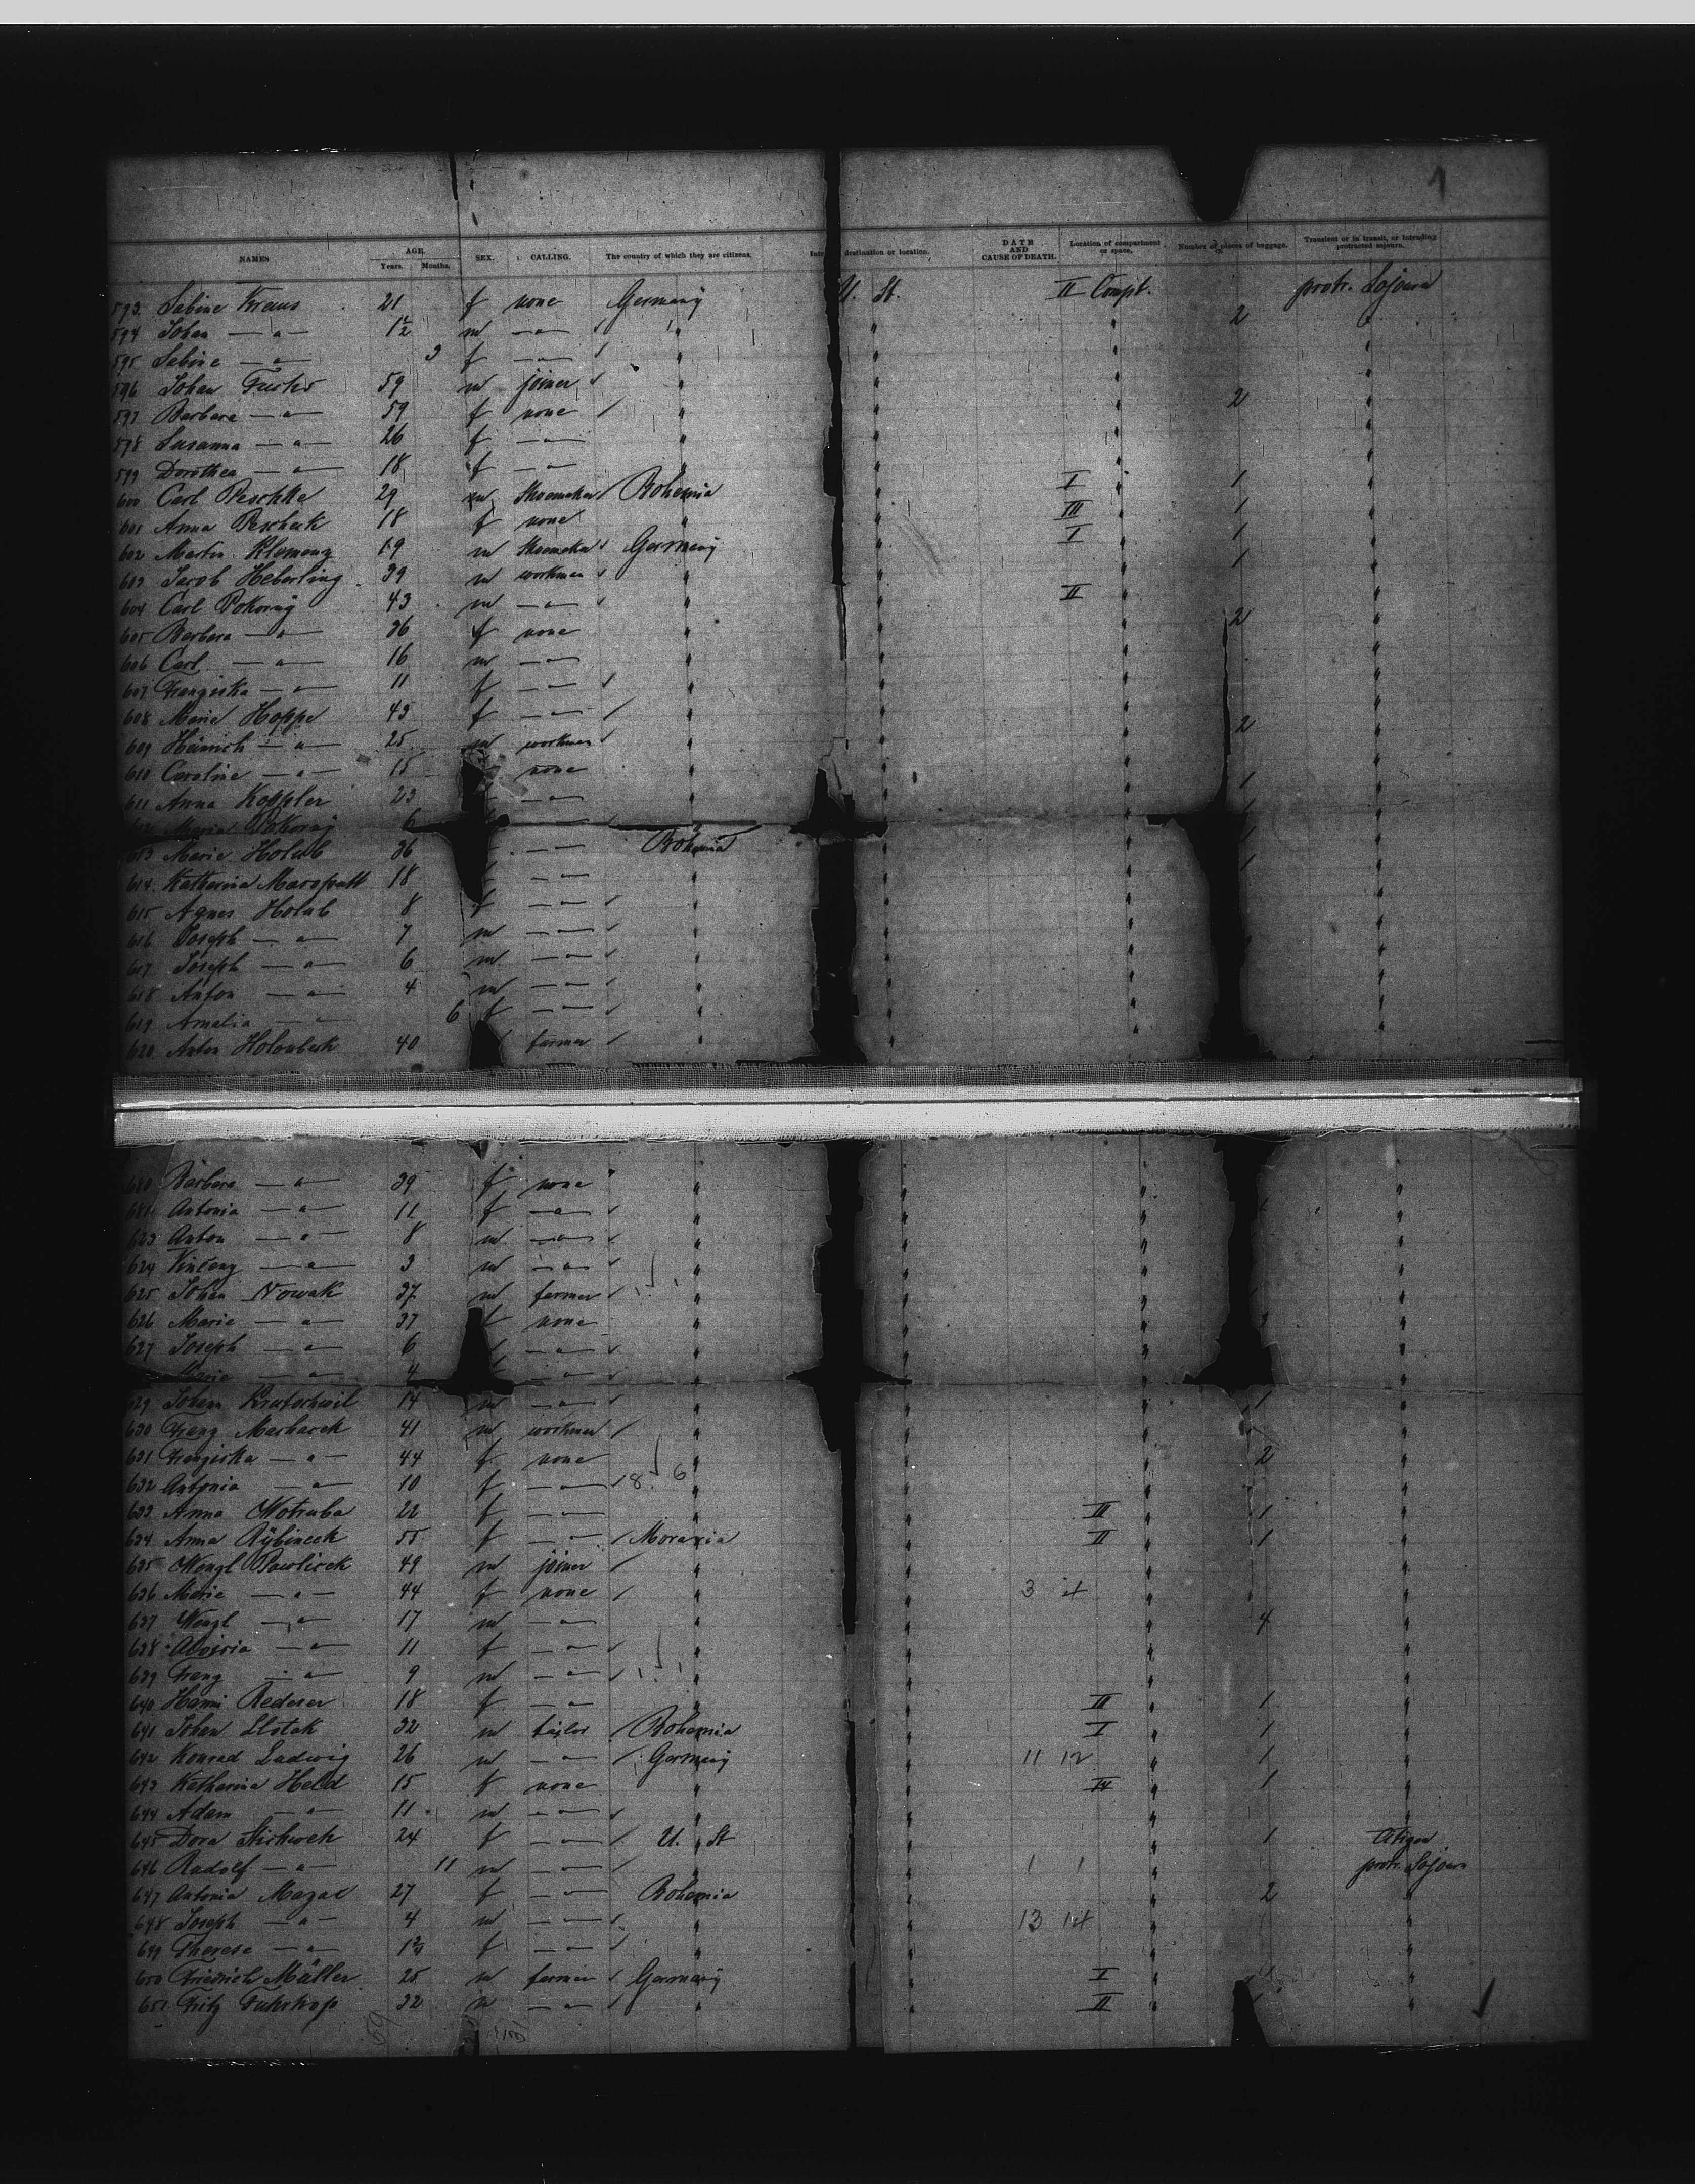 1
NAMES AGE. Years. Months. SEX. CALLING. The country of which they are citizens. destination or location. DATE AND CAUSE OF DEATH. Location of compartment or space. Number of pieces of baggage. Transient or in transit, or intending protracted sojourn.
593. Sabine Kraus 21 f none Germany U. St. II Compt. protr. Sojourn
594 Johan — " — 1½ m — " — " " " 2 "
595 Sabine — " — 3 f — " — " " " "
596 Johan Fuchs 59 m joiner " " " "
597 Barbara — " — 59 f none " " " 2 "
598 Susanna — " — 26 f — " — " " " "
599 Dorothea — " — 18 f — " — " " " "
600 Carl Peschke 29 m Shoemaker Bohemia " I " 1 "
601 Anna Pescheck 18 f none " " III " 1 "
602 Martin 19 m Shoemaker Germany " I " 1 "
603 Jacob Heberling 39 m workman " " " 1 "
604 Carl Pokorny 43 m — " — " " II " "
605 Barbara — " — 36 f none " " " 2 "
606 Carl — " — 16 m — " — " " " "
607 Franziska — " — 11 f — " — " " " "
608 Marie Hoppe 43 f — " — " " " "
609 Heinrich — " — 25 m workman " " " 2 "
610 Caroline — " — 15 none " " " "
611 Anna Koppler 23 — " — " " " 1 "
Maria Pokorny 6 — " — " " " "
613 Marie Holub 36 — " — Bohemia " " "
614. Katharina 18 — " — " " " 1 "
615 Agnes Holub 8 f — " — " " " "
616 Joseph — " — 7 m — " — " " " "
617 Joseph — " — 6 m — " — " " " "
618 Anton — " — 4 m — " — " " " "
619 Amalia — " — 6 f — " — " " " "
620 Anton Holoubeck 40 farmer " " " "
680 Barbara — " — 39 f none " " " "
681 Antonia — " — 11 f — " — " " " "
623 Anton — " — 8 m — " — " " " "
624 Vincenz — " — 3 m — " — " " " "
625 Johan Nowak 37 m farmer " " " "
626 Marie — " — 37 f none " " " "
627 Joseph — " — 6 — " — " " " "
Marie — " — 4 — " — " " " "
629 Johann Krutochwil 14 m — " — " " " 1 "
630 Franz Macharek 41 m workman " " " "
631 Franziska — " — 44 f none " " " 2 "
632 Antonia — " — 10 f — " — 8 6 " " " "
633 Anna Wotruba 22 f — " — " " III " 1 "
634 Anna Rybineck 55 f — " — Moravia " II " 1 "
635 Wenzl Pawliceck 49 m joiner " " " "
636 Marie — " — 44 f none " " 3 4 " "
637 Wenzl — " — 17 m — " — " " " 4 "
638 Aloisia — " — 11 f — " — " " " "
639 Franz — " — 9 m — " — " " " "
640 Hanni Rederer 18 f — " — " " III " 1 "
641 Johan Slotak 32 m tailor Bohemia " I " 1 "
642 Konrad Ludwig 26 m — " — Germany " 11 12 " 1 "
643 Katharina Held 15 f none " " IV " 1 "
644 Adam — " — 11 m — " — " " " "
645 Dora 24 f — " — U. St " " 1 Citizen
646 Rudolf — " — 11 m — " — " " 1 1 " protr. Sojourn
647 Antonia Mazac 27 f — " — Bohemia " " 2 "
648 Joseph — " — 4 m — " — " " 13 14 " "
649 Therese — " — f — " — " " " "
650 Friedrich Müller 25 m farmer Germany " I " "
651 Fritz 32 m — " — " " II " "
69 131